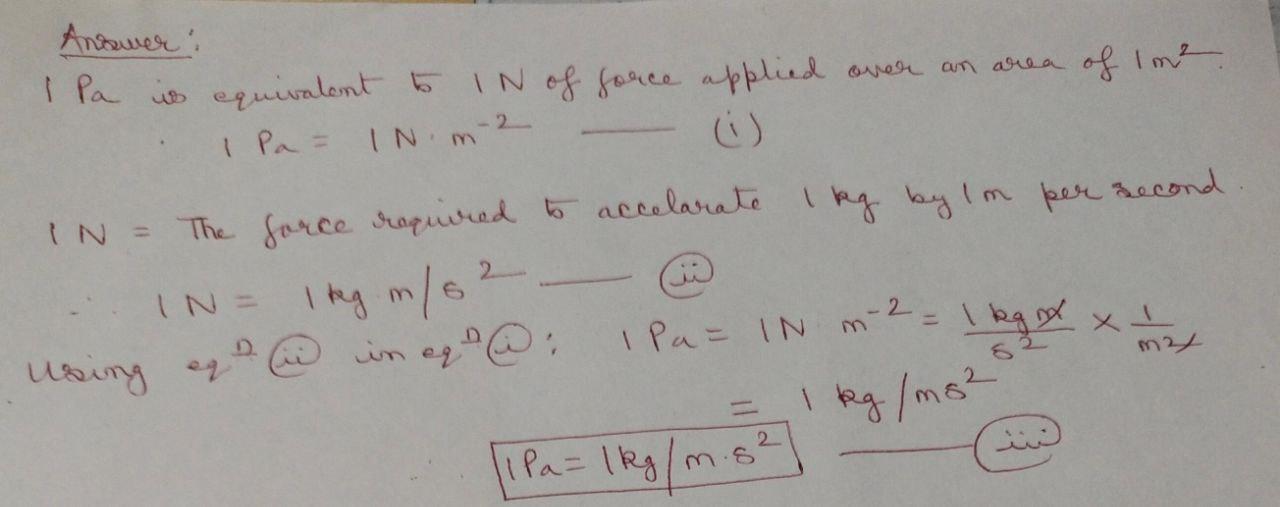 Answer:
1 Pa is equivalent to 1 N of force applied over an area of 1 m².
1 Pa = 1 N. m⁻² —— (i)
1 N = The force required to accelarate 1 kg by 1 m per second.
∴ 1 N = 1 kg m/s² —— (ii)
Using eqⁿ (ii) in eqⁿ (i): 1 Pa = 1 N m⁻² = 1 kg m / s² × 1 / m²
= 1 kg/ms²
1 Pa = 1 kg/m.s² —— (iii)